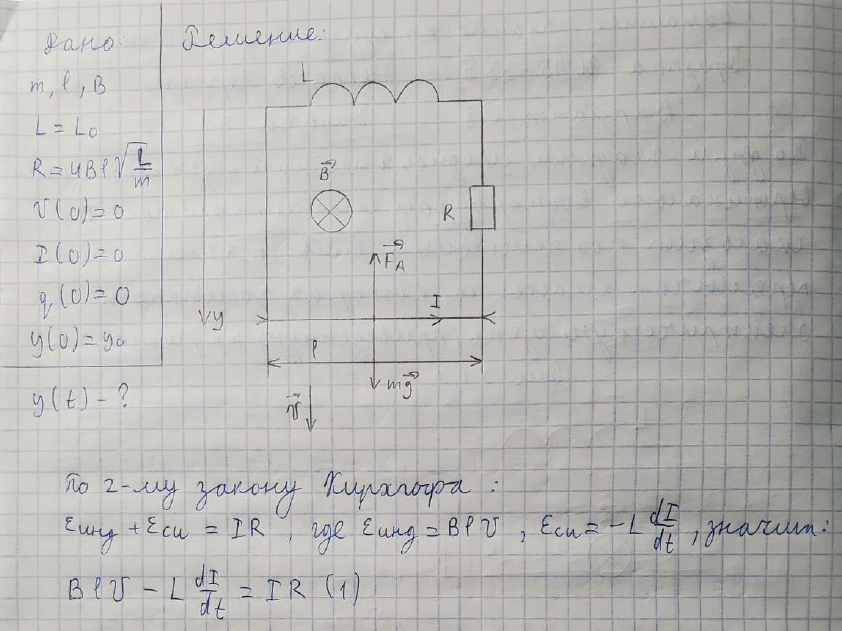 Дано:
m, l, B
L = L₀
R = 4Bl√(L/m)
V(0) = 0
I(0) = 0
q(0) = 0
y(0) = y₀
y(t) - ?
Решение:
L
B⃗
R
F⃗A
I
y
l
mg⃗
v⃗
По 2-му закону Кирхгофа:
εинд + εси = IR, где εинд = BlV, εси = -L dI/dt, значит:
BlV - L dI/dt = IR (1)